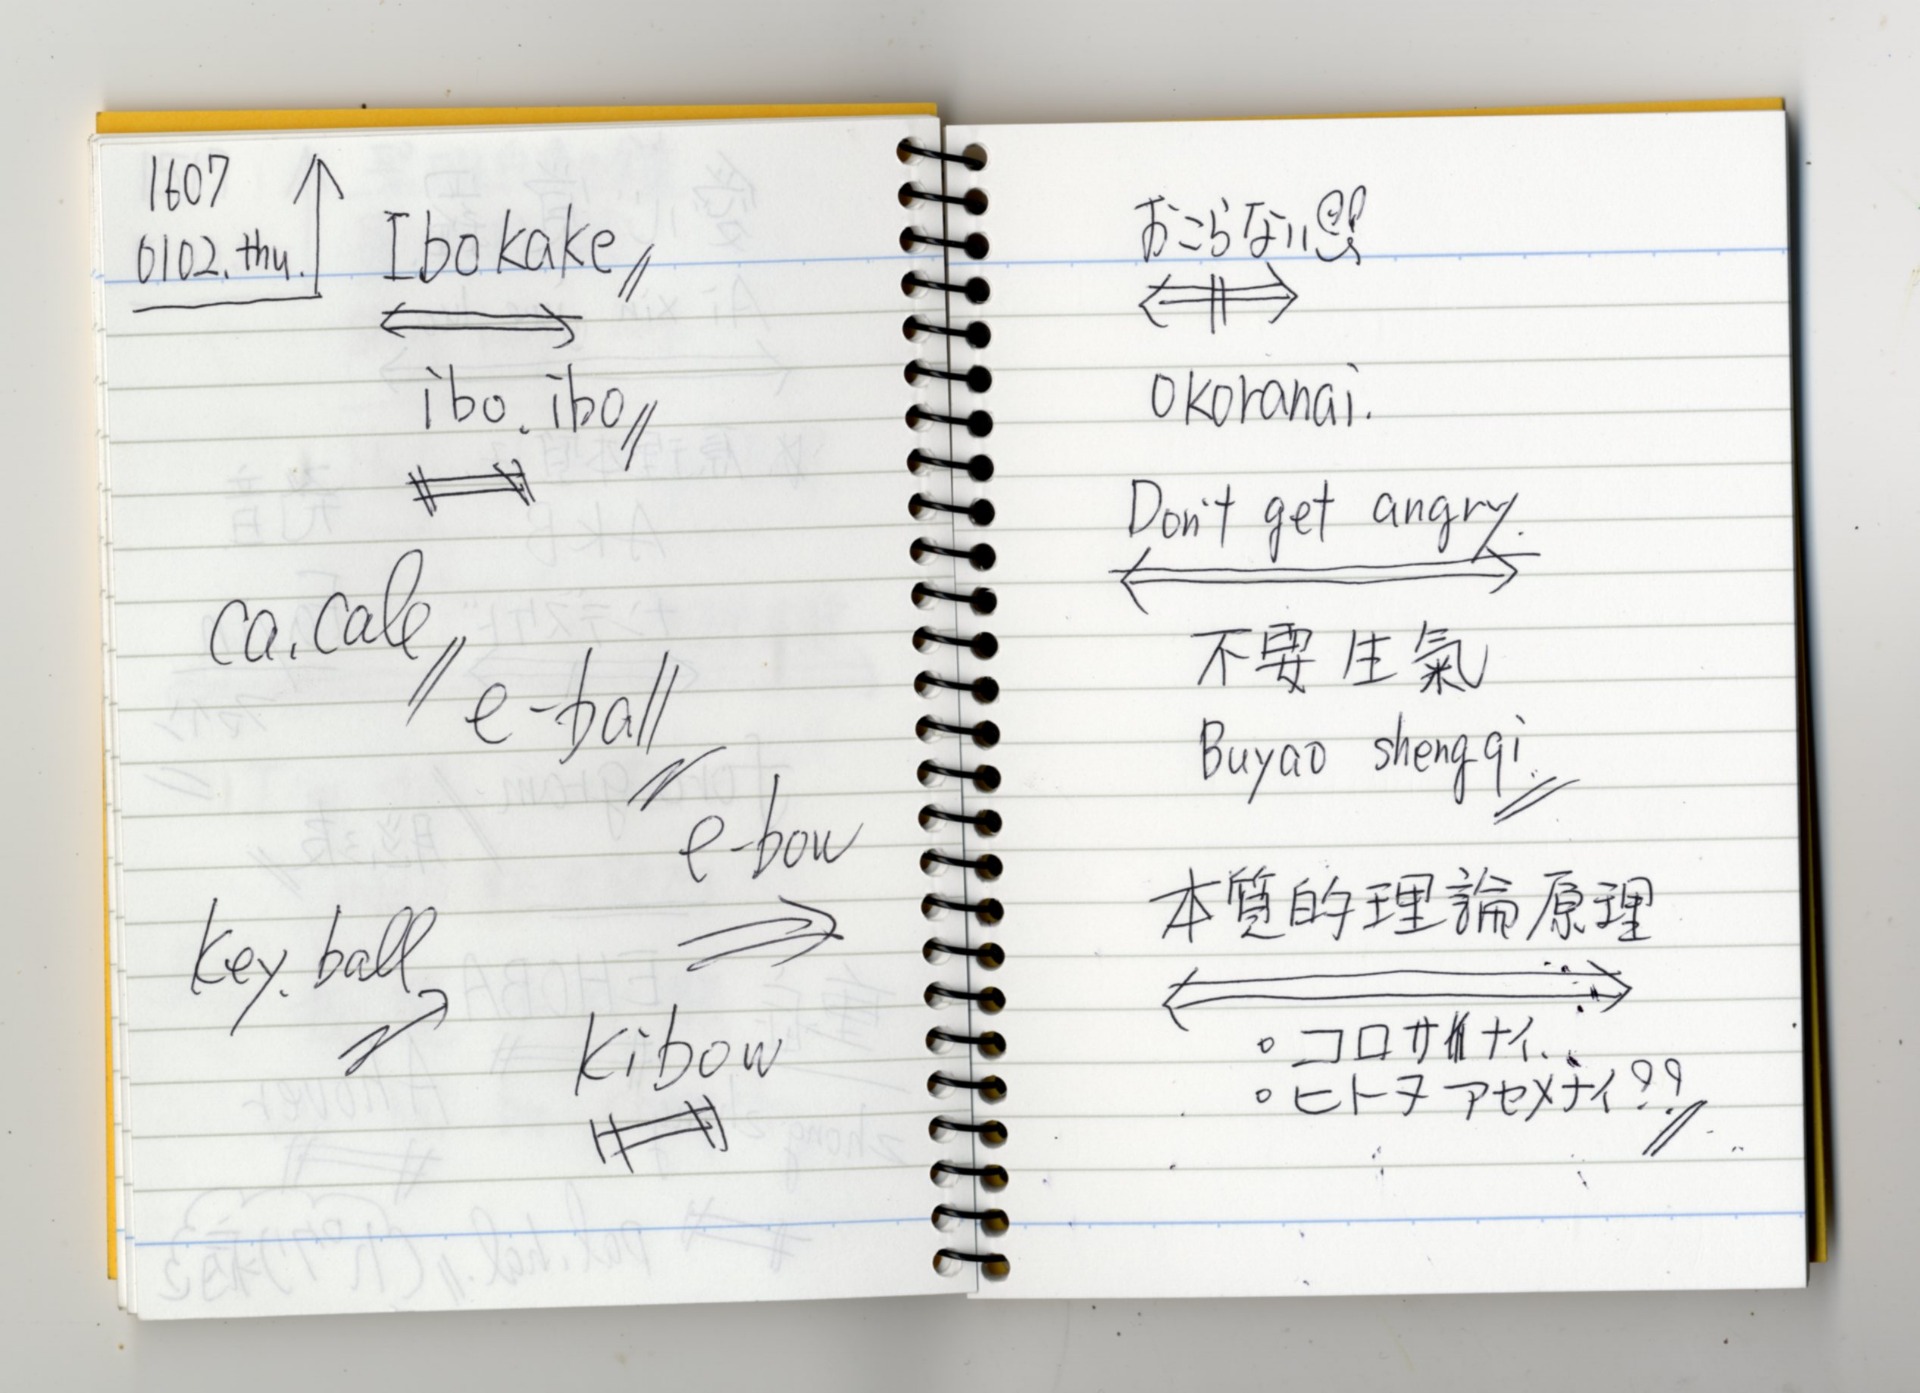 1607
0102.thu.
Ibokake
ibo.ibo
ca.cale
e-ball
e-bow
key.ball
kibow
おこらない
okoranai.
Don't get angry.
不要生氣
Buyao shengqi.
本質的理論原理
・コロサナイ、
・ヒトヲアセメナイ??